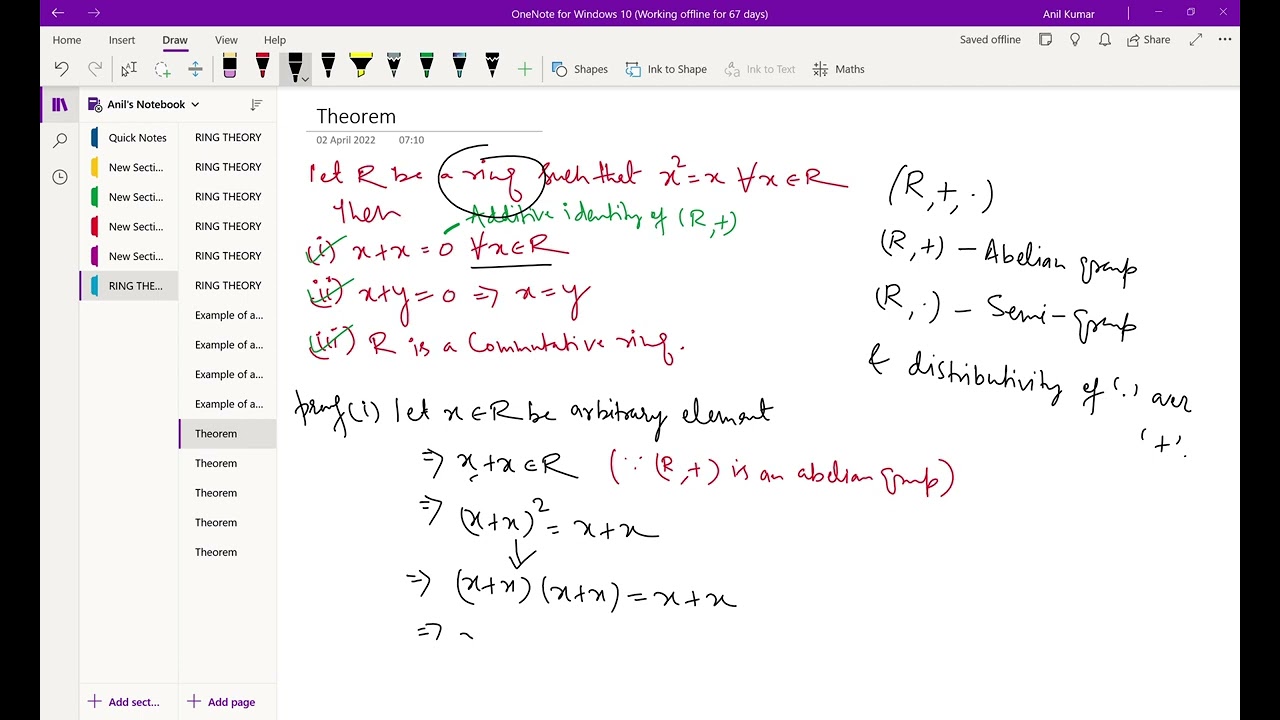 OneNote for Windows 10 (Working offline for 67 days)
Anil Kumar
Home Insert Draw View Help
Saved offline
Share
Shapes
Ink to Shape
Ink to Text
Maths
Anil's Notebook
Quick Notes
New Secti...
New Secti...
New Secti...
New Secti...
RING THE...
RING THEORY
RING THEORY
RING THEORY
RING THEORY
RING THEORY
RING THEORY
Example of a...
Example of a...
Example of a...
Example of a...
Theorem
Theorem
Theorem
Theorem
Theorem
Add sect...
Add page
Theorem
02 April 2022 07:10
let R be a ring such that x²=x ∀x∈R
Then
Additive identity of (R,+)
(i) x+x=0 ∀x∈R
(ii) x+y=0 ⇒ x=y
(iii) R is a Commutative ring.
proof (i) let x∈R be arbitrary element
⇒ x+x∈R (∵ (R,+) is an abelian group)
⇒ (x+x)²=x+x
⇒ (x+x)(x+x)=x+x
⇒
(R,+,·)
(R,+) – Abelian group
(R,·) – Semi-group
& distributivity of '·' over
'+'.